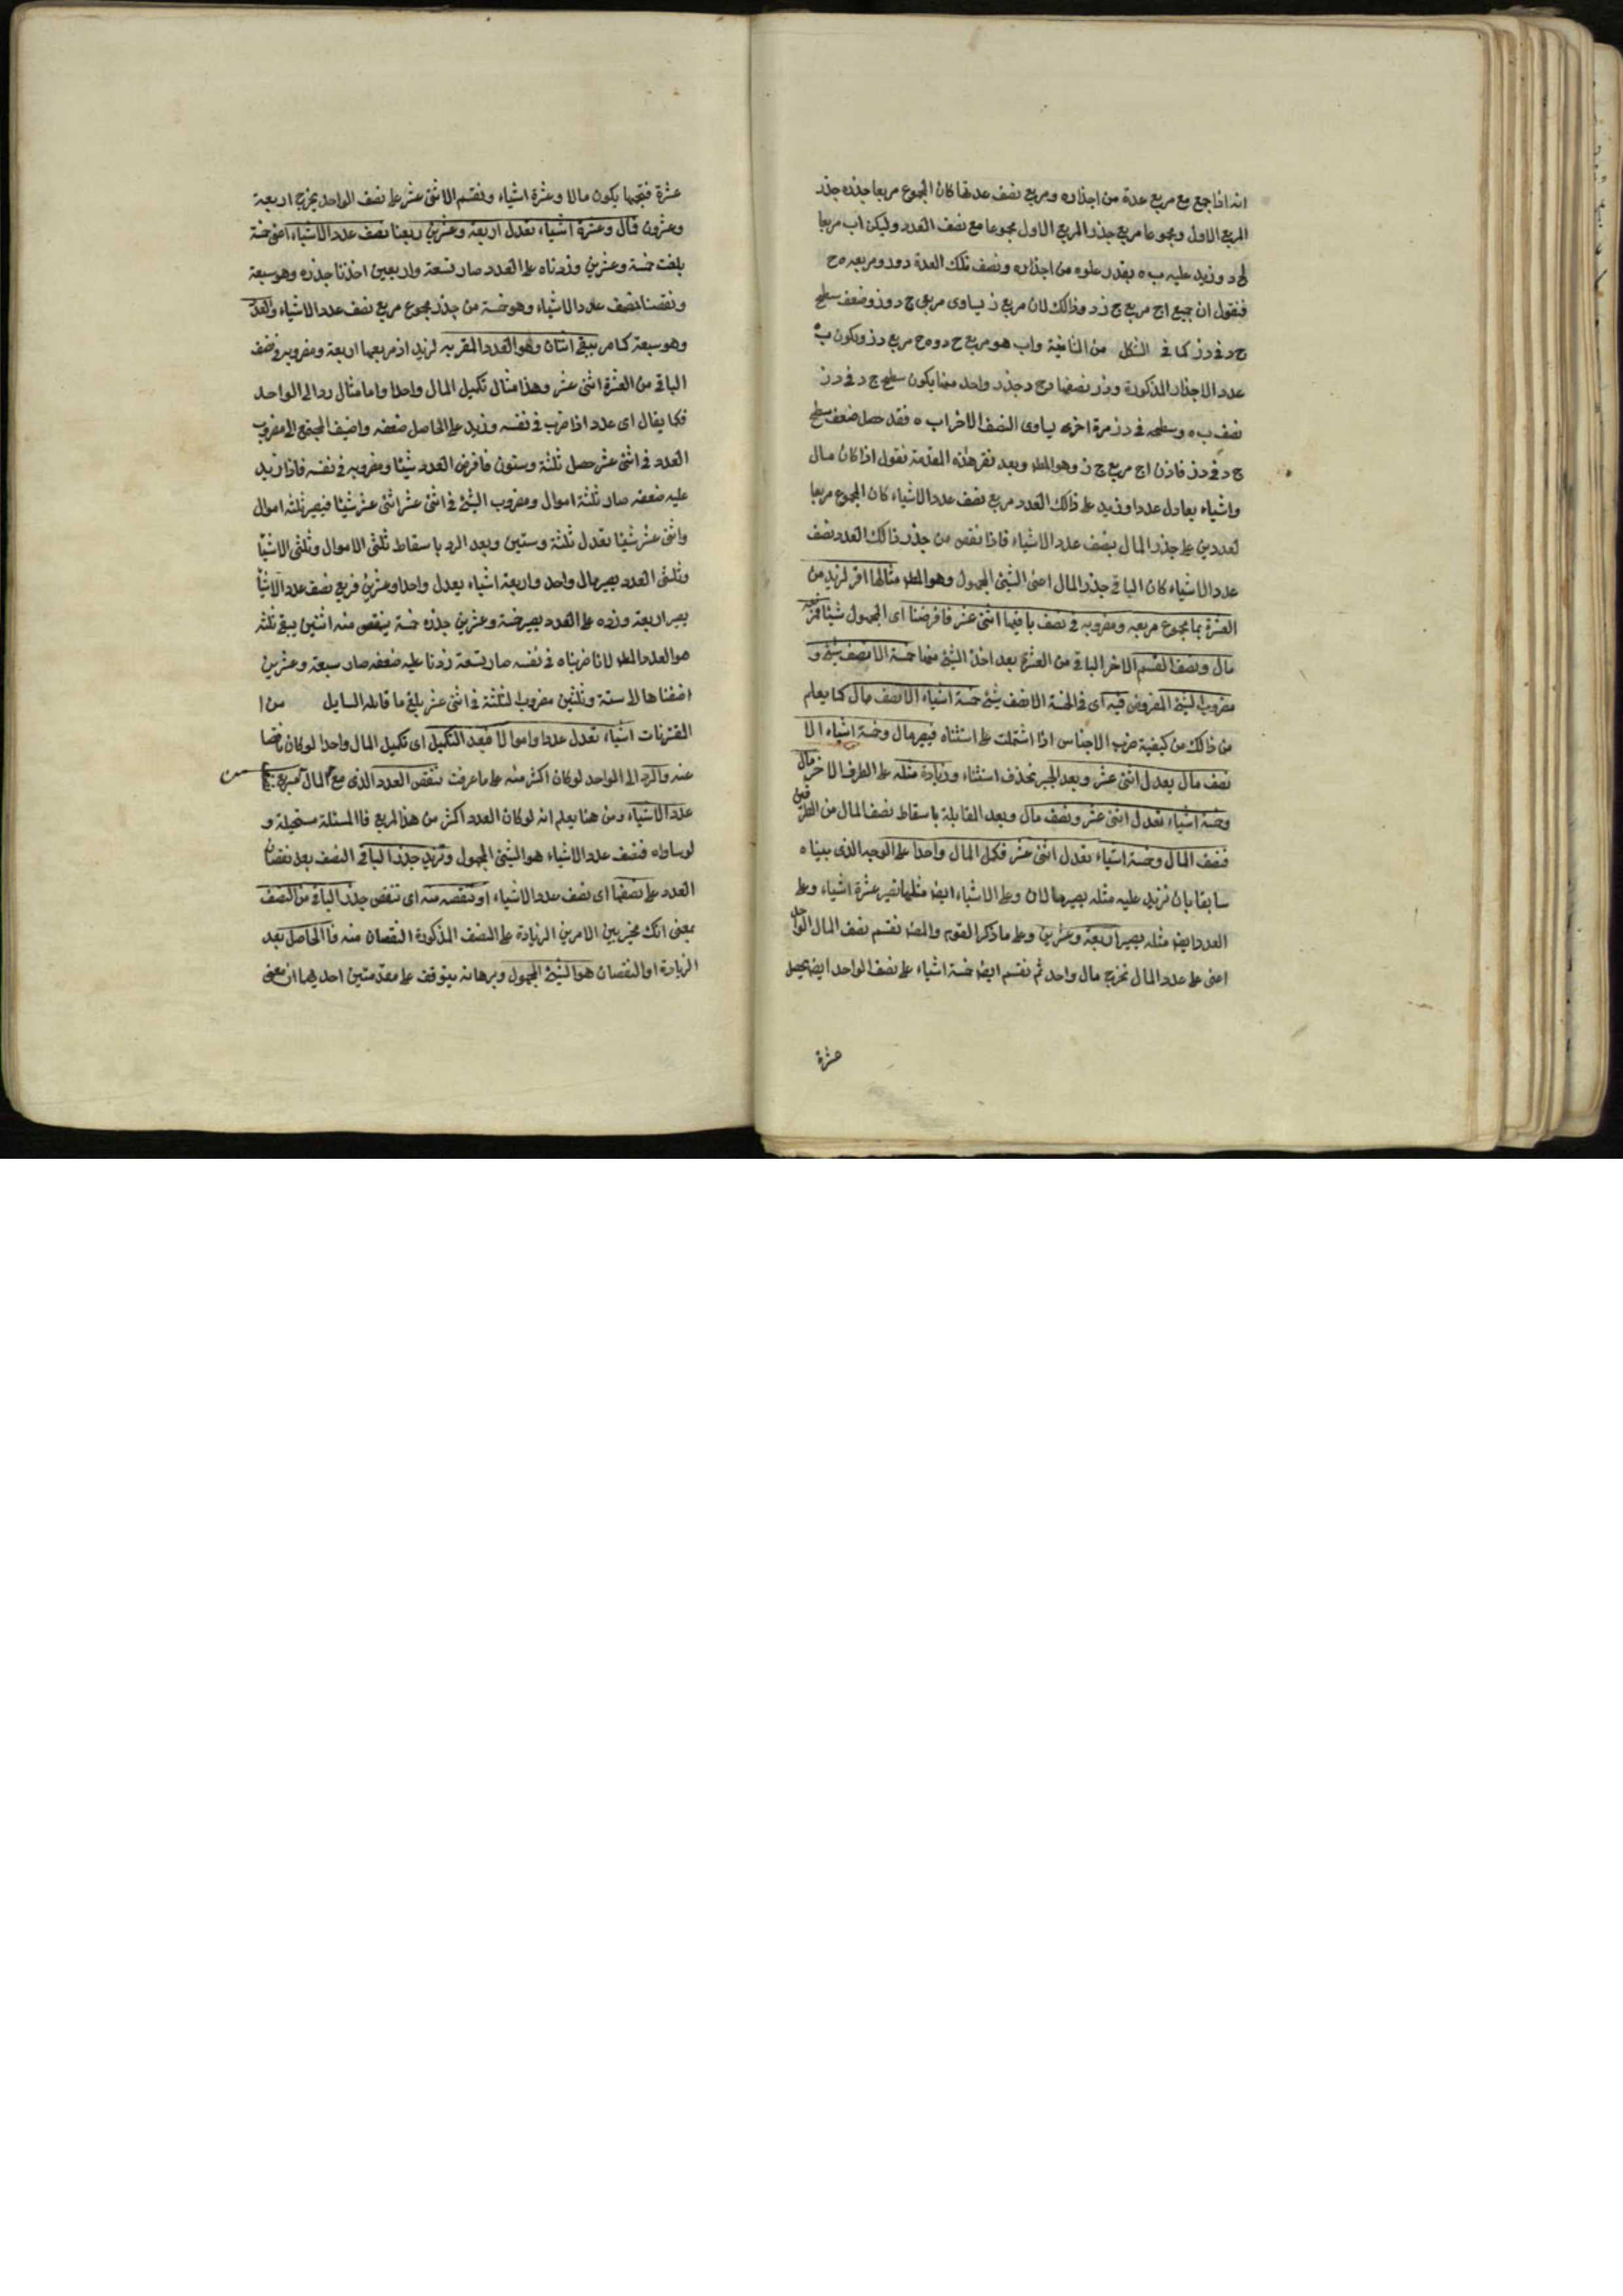 انه اذا جمع مع مربع عدة من اجذاره ومربع نصف عدتها كان المجموع مربعا جذره جذر
المربع الاول ومجموعا مربع جذر المربع الاول مجموعا مع نصف العدد وليكن اب مربعا
د وزيد عليه ب ه بقدر علوه من اجذاره ونصف تلك العدة د ز ومربعه ه ح
فنقول ان جميع اح مربع ج ز وذالك لان مربع ز يساوى مربعى ج د وز وضعف سطح
ج د فى د ز كما فى الشكل من الثانية واب هو مربع ج د وه ح مربع د ز ويكون ب ه
عدد الاجذار المذكورة ود ز نصفها وج د جذر واحد منها يكون سطح ج د فى د ز
نصف ب ه وسطحه فى د ز مرة اخرى يساوى النصف الاخر اب ه فقد حصل ضعف سطح
ج د فى د ز فاذن اح مربع ج ز وهو المط وبعد تقر هذه المقدمة نقول اذا كان مال
واشياء يعادل عددا وزيد على ذالك العدد مربع نصف عدد الاشياء كان المجموع مربعا
لعددين على جذر المال بنصف عدد الاشياء فاذا نقص من جذر ذالك العدد نصف
عدد الاشياء كان الباقى جذر المال اعنى الشئ المجهول وهو المط مثالها اقر لزيد من
العشرة بما مجموع مربعه ومضروبه فى نصف باقيها اثنى عشر فافرضنا اى المجهول شيئا فمربعه
مال ونصف القسم الاخر الباقى من العشرة بعد اخذ الشئ منها خمسة الا نصف شئ و
مضروب الشئ المفروض فيه اى فى الخمسة الا نصف شئ خمسة اشياء الا نصف مال كما يعلم
من ذالك من كيفية ضرب الاجناس اذا اشتملت على استثناء فيصير مال وخمسة اشياء الا
نصف مال يعدل اثنى عشر وبعد الجبر بحذف استثناء وزيادة مثله على الطرف الاخر مال
وخمسة اشياء تعدل اثنى عشر ونصف مال وبعد المقابلة باسقاط نصف المال من الطرفين
فنصف المال وخمسة اشياء تعدل اثنى عشر فكمل المال واحدا على الوجه الذى بيناه
سابقا بان نزيد عليه مثله يصير مالان وعلى الاشياء ايض مثلها تصير عشرة اشياء وعلى
العدد ايض مثله يصير اربعة وعشرين وعلى ما ذكر القوم والمص نقسم نصف المال الواحد
اعنى على عدد المال نخرج مال واحد ثم نقسم ايض خمسة اشياء على نصف الواحد ايض يحصل
عشرة
عشرة فتجمها يكون مالا وعشرة اشياء ونقسم الاثنى عشر على نصف الواحد يخرج اربعة
وعشرون فال وعشرة اشياء تعدل اربعة وعشرين ربعنا نصف عدد الاشياء اعنى خمسة
بلغت خمسة وعشرين وزدناه على العدد صار تسعة واربعين اخذنا جذره وهو سبعة
ونقصنا نصف عدد الاشياء وهو خمسة من جذر مجموع مربع نصف عدد الاشياء والعدد
وهو سبعة كما مر تبقى اثنان وهو العدد المقر به لزيد اذ مربعها اربعة ومضروبه فى نصف
الباقى من العشرة اثنى عشر وهذا مثال تكميل المال واحدا واما مثال رد الى الواحد
فكما يقال اى عدد اذا ضرب فى نفسه وزيد على الحاصل ضعفه واضيف المجتمع الى مضروب
العدد فى اثنى عشر حصل ثلثة وستون فافرض العدد شيئا ومضروبه فى نفسه فاذا زيد
عليه ضعفه صار ثلثة اموال ومضروب الشئ فى اثنى عشر اثنى عشر شيئا فيصير ثلثه اموال
واثنى عشر شيئا تعدل ثلثة وستين وبعد الرد باسقاط ثلثى الاموال وثلثى الاشياء
وثلثى العدد يصير مال واحد واربعة اشياء يعدل واحدا وعشرين فربع نصف عدد الاشياء
يصير اربعة وزده على العدد يصير خمسة وعشرين جذره خمسة ينقص منه اثنتين يبقى ثلثه
هو العدد المط لانا ضربناه فى نفسه صار تسعة زدنا عليه ضعفه صار سبعة وعشرين
اضفناها الى ستة وثلثين مضروب الثلثة فى اثنى عشر بلغ ما قابله السايل من ا
المقترنات اشياء تعدل عددا واموالا فبعد التكميل اى تكميل المال واحدا لو كان ناقصا
عنه والرد الى الواحد لو كان اكثر منه على ما عرفت تنقص العدد الذى مع المال من مربع نصف
عدد الاشياء ومن هنا يعلم انه لو كان العدد اكثر من هذا المربع فا المسئلة مستحيلة و
لو ساواه فنصف عدد الاشياء هو الشئ المجهول وتزيد جذر الباقى النصف بعد نقصان
العدد على نصفها اى نصف عدد الاشياء او تنقصه منه اى تنقص جذر الباقى من النصف
بمعنى انك مخير بين الامرين الزيادة على النصف المذكورة النقصان منه فا الحاصل بعد
الزيادة او النقصان هو الشئ المجهول وبرهانه يتوقف على مقدمتين احديهما ان معنى